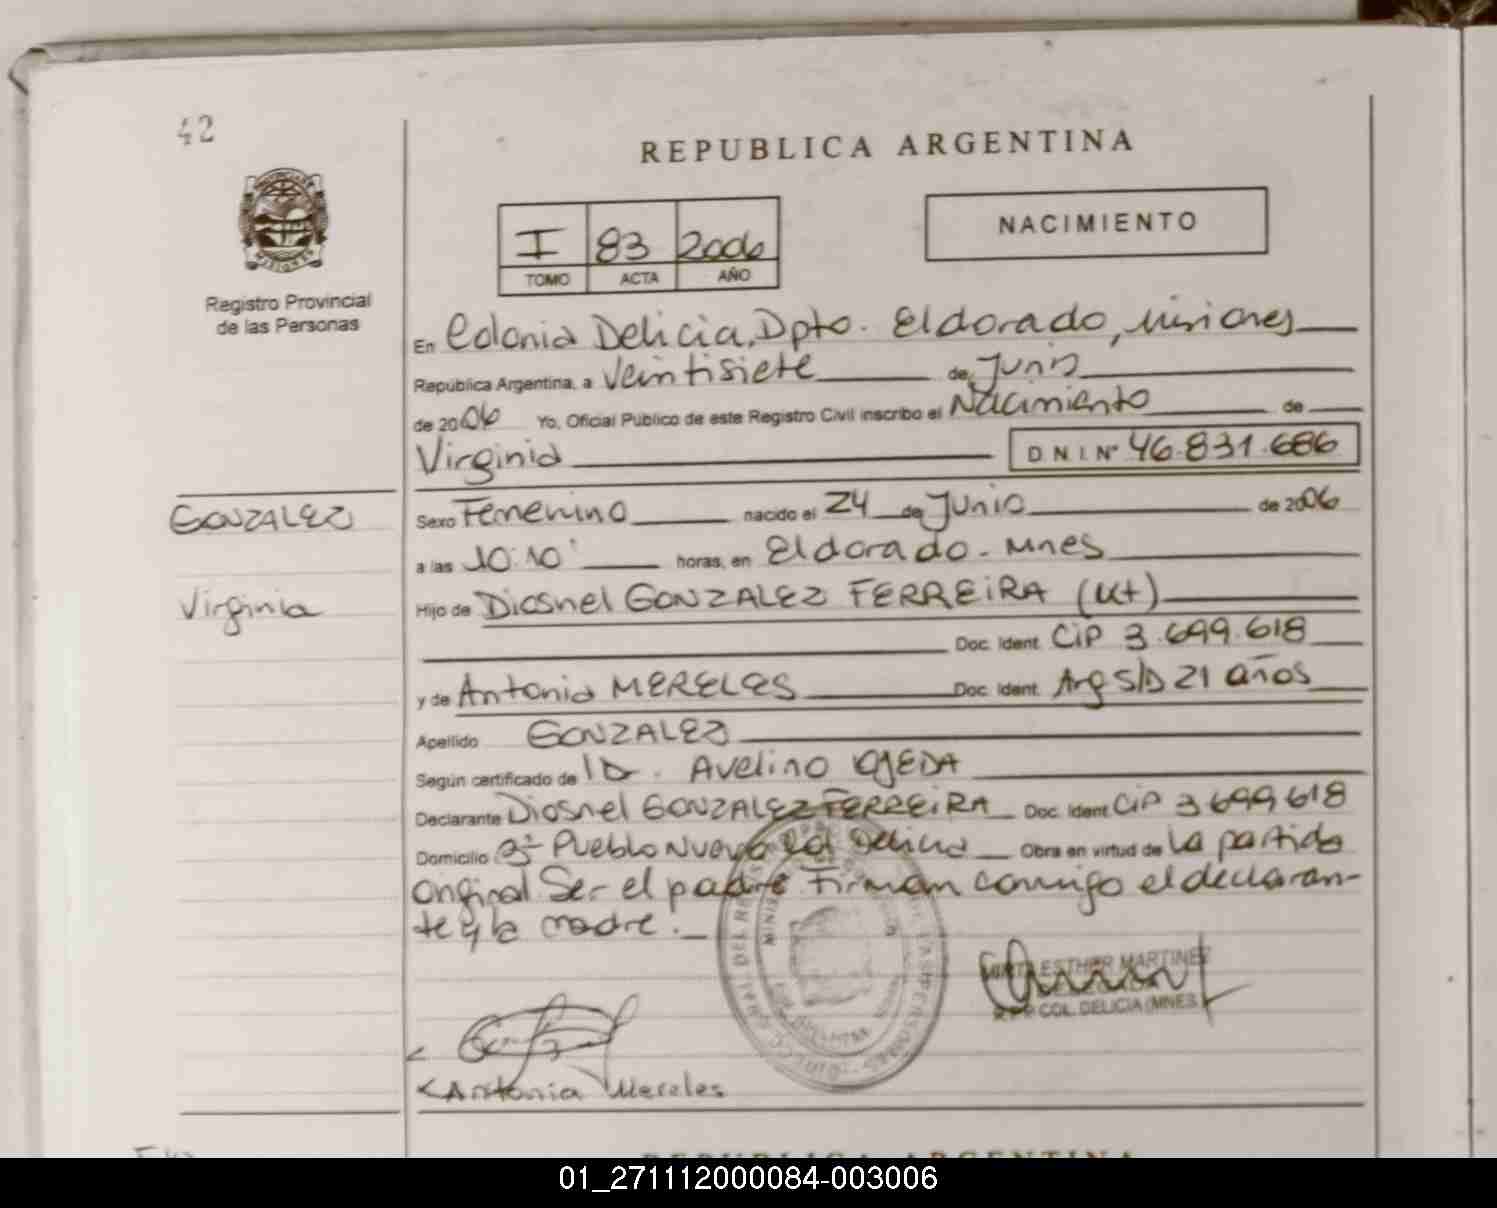 42
REPUBLICA ARGENTINA
I 83 2006
TOMO ACTA AÑO
NACIMIENTO
Registro Provincial
de las Personas
En Colonia Delicia, Dpto. Eldorado, Misiones
República Argentina, a Veintisiete de Junio
de 2006 Yo, Oficial Público de este Registro Civil inscribo el Nacimiento de
Virginia D.N.I. Nº 46.831.686
GONZALEZ
Virginia
Sexo Femenino nacido el 24 de Junio de 2006
a las 10:10' horas, en Eldorado - Mnes
Hijo de Diosnel GONZALEZ FERREIRA
Doc. Ident. CIP 3.699.618
y de Antonia MERELES Doc. Ident. Arg S/D 21 años
Apellido GONZALEZ
Según certificado de Avelino OJEDA
Declarante Diosnel GONZALEZ FERREIRA Doc. Ident. CIP 3699618
Domicilio Pueblo Nuevo Col Delicia Obra en virtud de La partida
original Ser el padre. Firman conmigo el declaran-
te y la madre.
ESTHER MARTINEZ
COL. DELICIA (MNES)
Antonia Mereles
REPUBLICA ARGENTINA
01_271112000084-003006